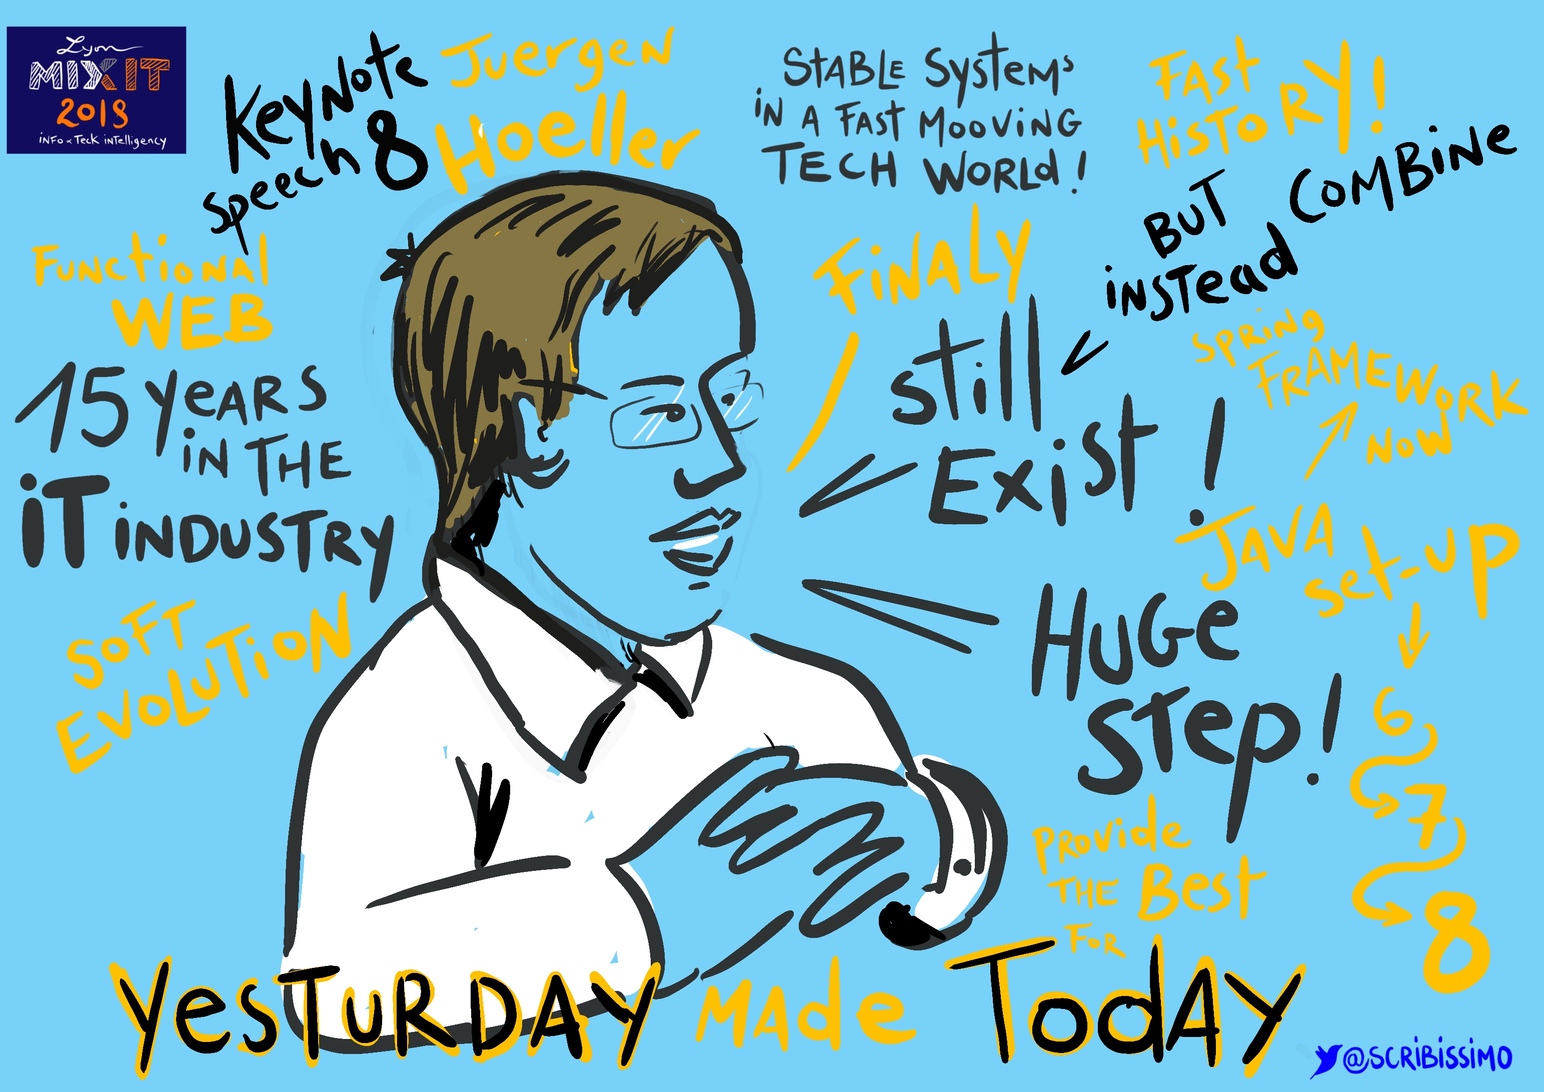 Lyon
MIXIT
2018
iNFO & Teck intelligency
Keynote
speech 8
Juergen
Hoeller
STABLE Systems
iN A FAST MOOViNG
TECH WORLd !
FAST
HiSTORY!
BUT
iNSTead COMBiNE
FUNCTiONAL
WEB
15 YeARS
iN THE
iT iNDUSTRY
SOFT
EVOLUTiON
FiNALY
still
Exist !
SPRiNG
FRAMEWORK
NOW
JAVA
set-up
6
7
8
HUGe
STep!
PROVide
THE Best
FOR
YesTURDAY MAde TodAY
@SCRiBiSSiMO